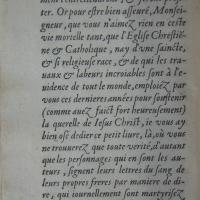 ter. Or pour estre bien asseuré, Monsei-
gneur, que vous n'aimez rien en ceste
vie mortelle tant, que l'Eglise Chrestiē-
ne & Catholique, nay d'vne saincte,
& si religieuse race, & de qui les tra-
uaux & labeurs incroiables sont à l'e-
uidence de tout le monde, emploiez par
vous ces dernieres années pour soustenir
(comme auez faict fort heureusement)
la querelle de Iesus Christ, ie vous ay
bien osé dedier ce petit liure, là, où vous
ne trouuerez que toute verité, d'autant
que les personnages qui en sont les au-
teurs, signent leurs lettres du sang de
leurs propres freres par maniere de di-
re, qui iournellement sont martyrisez